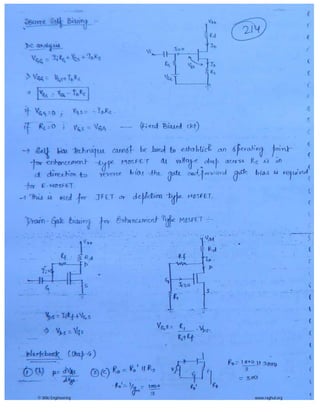 Source Self Biasing :-
214
DC analysis
V_GG = I_G R_G + V_GS + I_D R_S
⇒ V_GG = V_GS + I_D R_S
⇒ V_GS = V_GG - I_D R_S
if V_GG = 0 ; V_GS = - I_D R_S
if R_S = 0 ; V_GS = V_GG ---- (Fixed Biased ckt)
→ Self bias technique cannot be used to establish an operating point
for enhancement type MOSFET as voltage drop across R_S is in
a direction to reverse bias the gate and forward gate bias is required
for E-MOSFET.
→ This is used for JFET or depletion type MOSFET.
Drain-Gate Biasing for Enhancement type MOSFET :-
V_DD
R_d
R_f
D
G
S
V_DS = I_G R_f + V_GS
⇒ V_DS = V_GS
V_DD
R_d
R_f
D
G
S
Workbook (Chap-4)
© Wiki Engineering
www.raghul.org